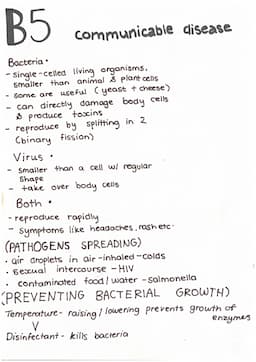 B5 communicable disease
Bacteria •
- single-celled living organisms,
smaller than animal & plant cells
- some are useful (yeast + cheese)
- can directly damage body cells
& produce toxins
- reproduce by splitting in 2
(binary fission)
Virus •
- smaller than a cell w/ regular
shape
- take over body cells
Both •
- reproduce rapidly
- symptoms like headaches, rash etc.
(PATHOGENS SPREADING)
• air droplets in air-inhaled-colds
• sexual intercourse - HIV
• contaminated food/water-salmonella
(PREVENTING BACTERIAL GROWTH)
Temperature- raising/lowering prevents growth of
enzymes
Disinfectant- kills bacteria